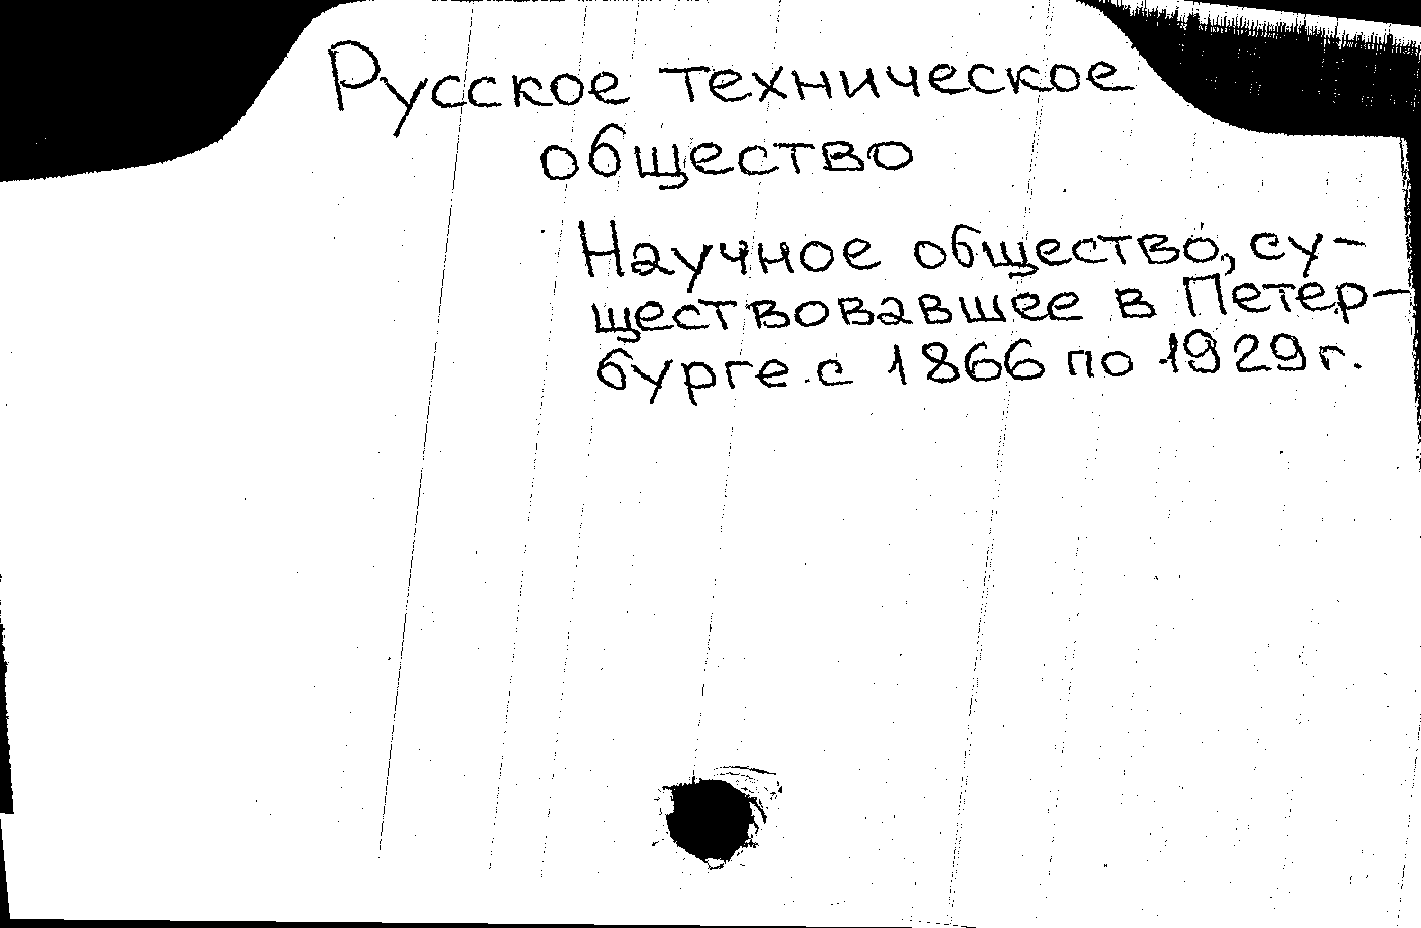 Русское техническое
общество
Научное общество, су-
ществовавшее в Петер-
бурге с 1866 по 1929 г.